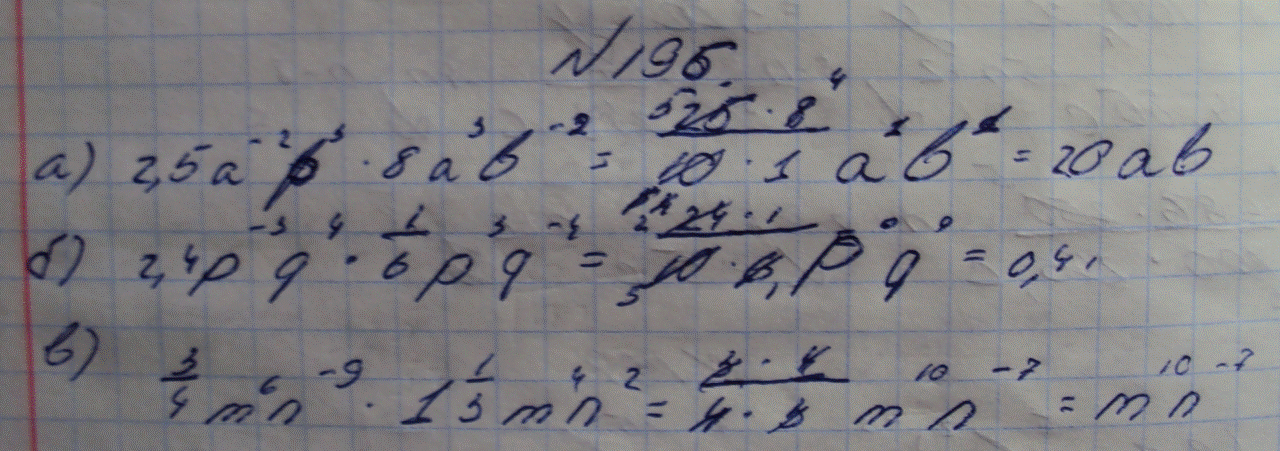 №196.
а) 2,5a⁻²b³ · 8a³b⁻² = (25 · 8)/(10 · 1) a¹b¹ = 20ab
б) 2,4p⁻³q⁴ · 1/6 p³q⁻⁴ = (24 · 1)/(10 · 6) p⁰q⁰ = 0,4.
в) 3/4 m⁶n⁻⁹ · 1 1/3 m⁴n² = (3 · 4)/(4 · 3) m¹⁰n⁻⁷ = m¹⁰n⁻⁷